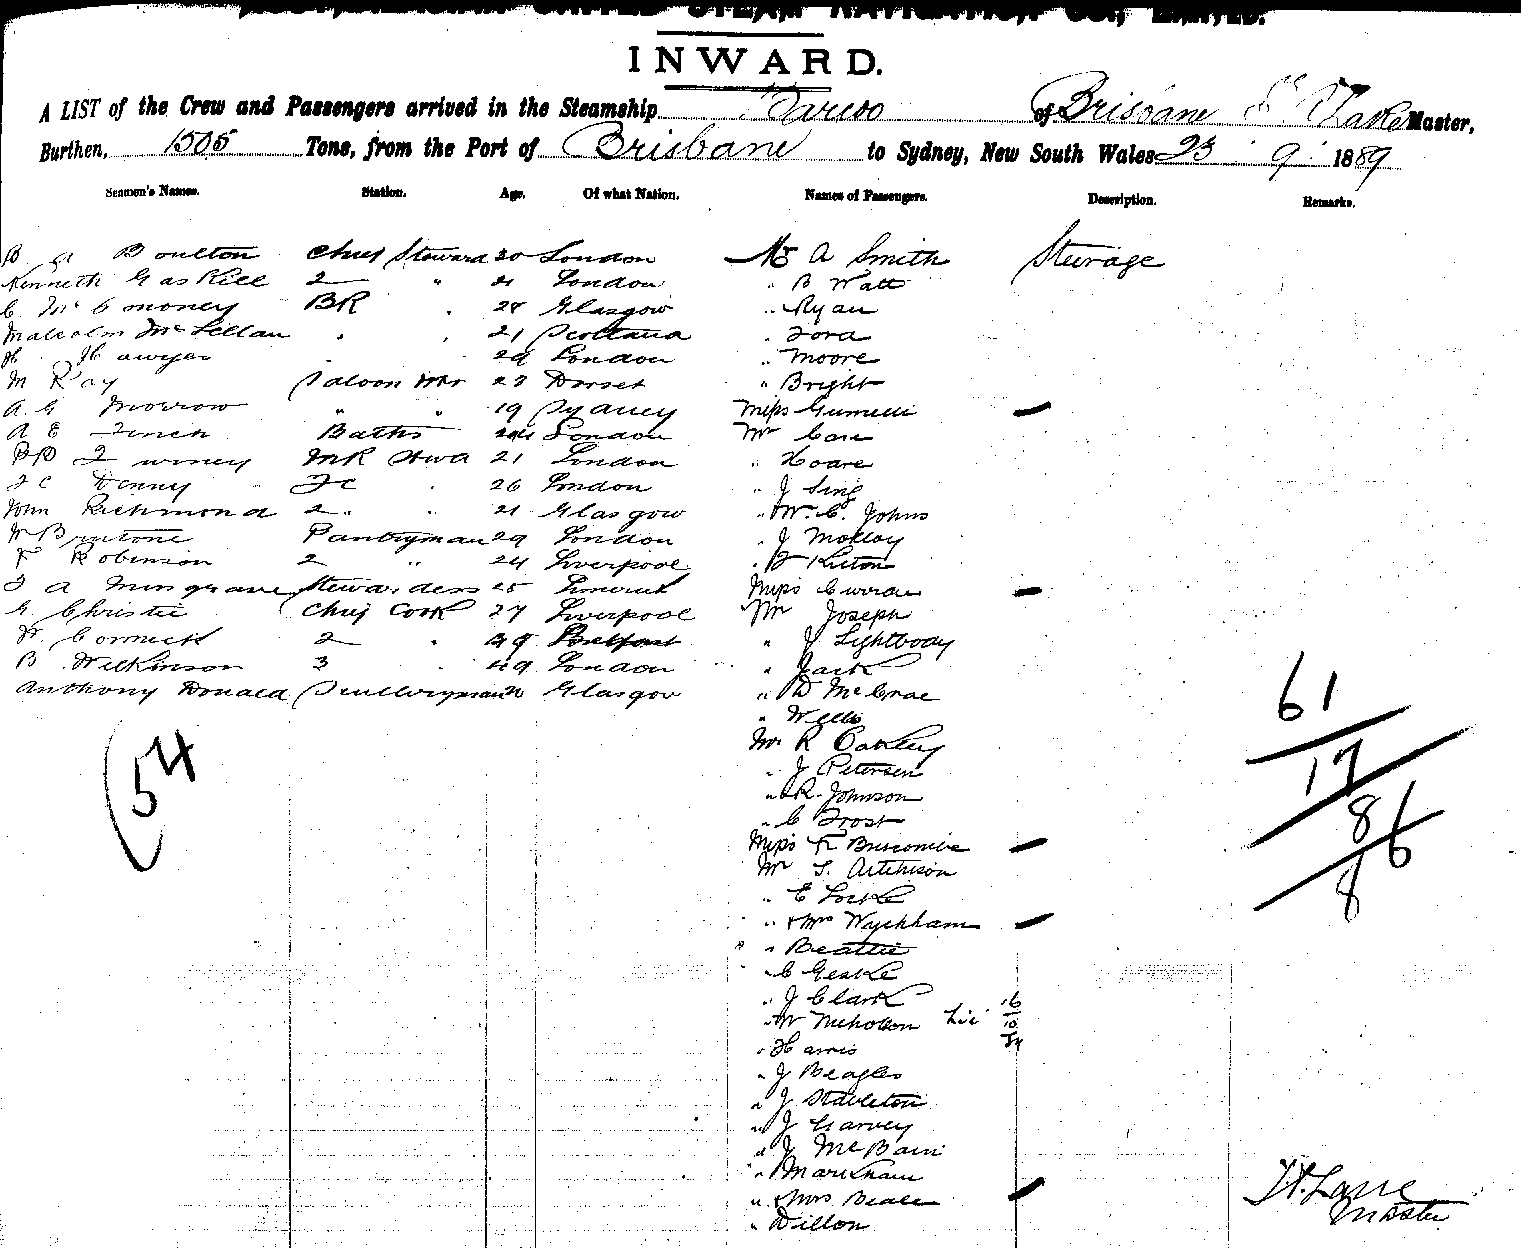 UNITED STEAM NAVIGATION CO., LIMITED.
INWARD.
A LIST of the Crew and Passengers arrived in the Steamship Warego of Brisbane Master,
Burthen, 1505 Tons, from the Port of Brisbane to Sydney, New South Wales 23 9 1889
Seamen's Names. Station. Age. Of what Nation. Names of Passengers. Description. Remarks.
Boulton Chief Steward 20 London Mr A Smith Steerage
Kenneth Gaskill 2 " 21 London " B Watt
BR 28 Glasgow " Ryan
Malcolm McLellan 21 Scotland " Ford
H Hawyer 29 London " Moore
M Ray Saloon 23 Dorset " Bright
A. G Morrow " " 19 Sydney Miss
A E Finch Baths London Mr
21 London " Hoare
F C Denny 26 London " J Sing
John Richmond 2 " " 21 Glasgow " W. C. Johns
Pantryman 29 London " J Molloy
F Robinson 2 " 24 Liverpool
F A Musgrave Stewardess 25 Limerick Miss Curran
G. Christie Chief Cook 27 Liverpool Mr Joseph
W. Cormick 2 " 39 Belfast " J Lightbody
B Wilkinson 3 49 London " Jack
Anthony Donald Sculleryman 20 Glasgow " D McCrae
" Wells
Mr R Oakley
" J Petersen
" R. Johnson
" C Frost
Miss F Briscombe
Mr T. Aitchison
" E Locke
" & Mrs Wyckham
" " Beattie
" C Geske
" J Clark
" W Nicholson
" Harris
" J Beagles
" J Stapleton
" J Garvey
" J McBain
" Markham
" & Mrs Beale
" Dillon
54
61
17
8
6
8
H. Lane
Master